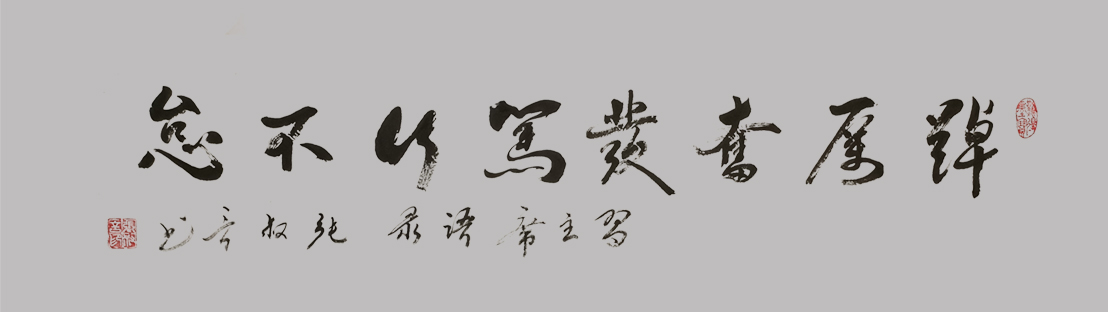 踔厲奮發篤行不怠
習主席語录 張叔書